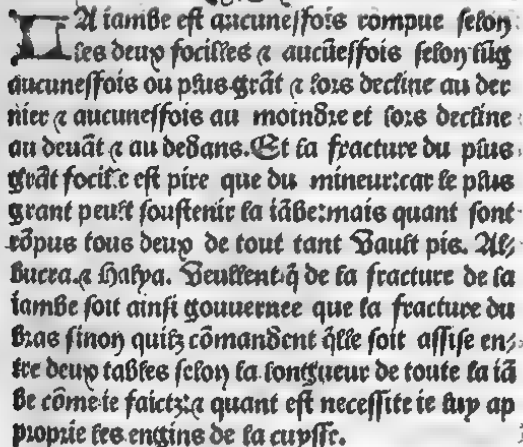 LA iambe est aucuneſſois rompue ſelon
les deux focilles ⁊ aucũeſfois ſelon lũg
aucuneſfois ou plus grãt ⁊ lors decline au der
nier ⁊ aucuneſfois au moindre et lors decline
au deuãt ⁊ au dedans. Et la fracture du plus
grãt focille eſt pire que du mineur: car le plus
grant peult ſouſtenir la iãbe: mais quant ſont
rõpus tous deux de tout tant vault pis. Al⸗
bucra. ⁊ Halya. veullent q̃ de la fracture de la
iambe ſoit ainſi gouuernee que la fracture du
bras ſinon quilz cõmandent q̃lle ſoit aſſiſe en⸗
tre deux tables ſelon la longueur de toute la iã
be cõme ie faictz: ⁊ quant eſt neceſſite ie luy ap
proprie les engins de la cuyſſe.